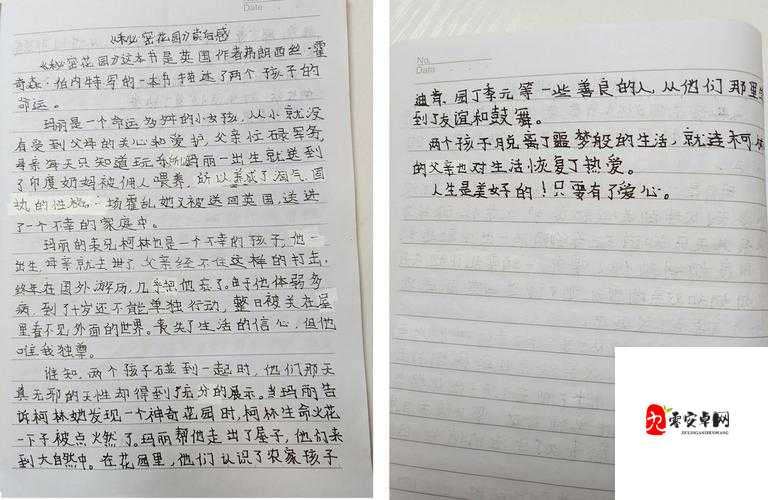 《秘密花园》读后感
《秘密花园》这本书是英国作者弗朗西丝·霍
奇森·伯内特写的一本书描述了两个孩子的
命运。
玛丽是一个命运多舛的小女孩,从小就没
有受到父母的关心和爱护,父亲忙碌军务,
母亲每天只知道玩乐所玛丽一出生就送到
了印度奶妈被佣人喂养,所以养成了淘气、固
执的性格。一场霍乱她又被送回英国,送进
了一个不幸的家庭中。
玛丽的表兄柯林也是一个不幸的孩子,他一
出生,母亲就去世了,父亲经不住这样的打击,
终年在国外游历,几乎把他忘了。由于他体弱多
病,到了十岁还不能单独行动,整日被关在屋
里看不见外面的世界。丧失了生活的信心,但他
唯我独尊。
谁知,两个孩子碰到一起时,他们那天
真无邪的天性却得到了充分的展示。当玛丽告
诉柯林她发现一个神奇花园时,柯林生命火花
一下子被点火然了。玛丽帮他走出了屋子,他们来
到大自然中。在花园里,他们认识了农家孩子
No.
Date
迪肯、园丁季元等一些善良的人,从他们那里
到了友谊和鼓舞。
两个孩子脱离了噩梦般的生活,就连柯林
的父亲也对生活恢复了热爱。
人生是美好的!只要有了爱心。
Date
零安卓网